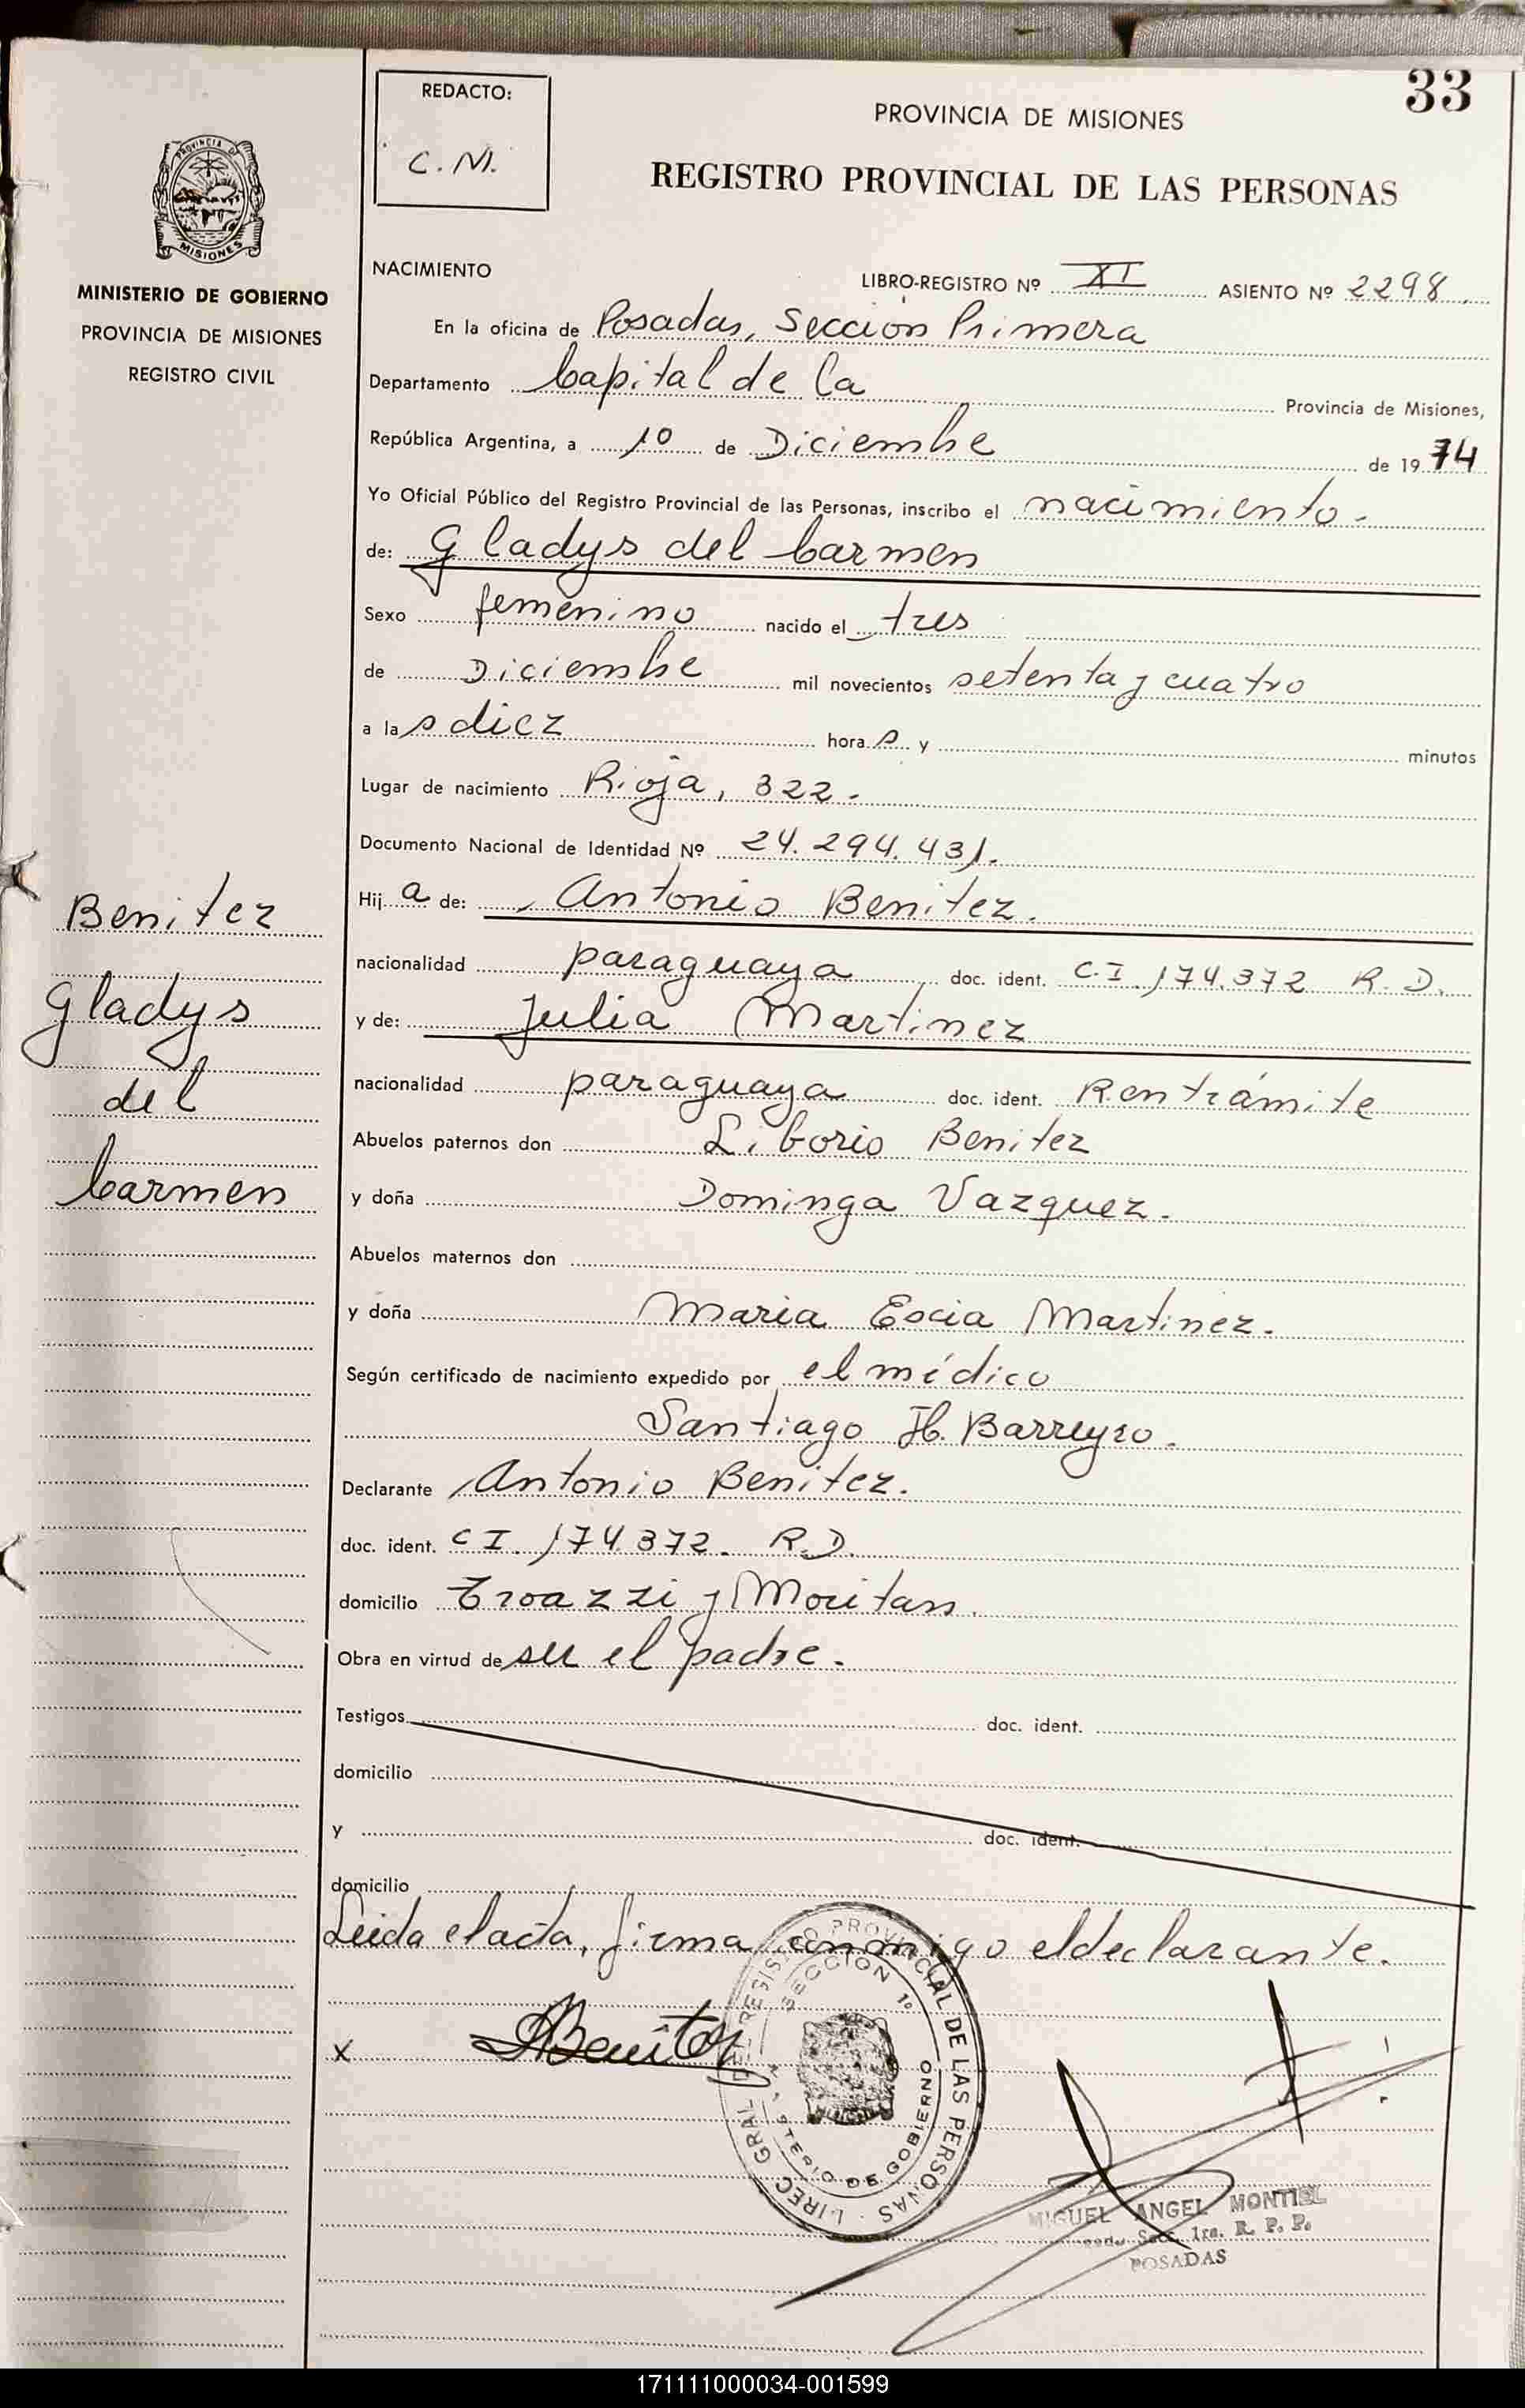 33
REDACTO:
C. M.
PROVINCIA DE MISIONES
REGISTRO PROVINCIAL DE LAS PERSONAS
PROVINCIA DE
MISIONES
MINISTERIO DE GOBIERNO
PROVINCIA DE MISIONES
REGISTRO CIVIL
NACIMIENTO
LIBRO-REGISTRO Nº XI ASIENTO Nº 2298
En la oficina de Posadas, Sección Primera
Departamento Capital de la Provincia de Misiones,
República Argentina, a 10 de Diciembre de 1974
Yo Oficial Público del Registro Provincial de las Personas, inscribo el nacimiento.
de: Gladys del Carmen
Sexo femenino nacido el tres
de Diciembre mil novecientos setenta y cuatro
a las diez horas y minutos
Lugar de nacimiento Rioja, 322.
Documento Nacional de Identidad Nº 24.294.431.
Hija de: Antonio Benitez.
nacionalidad paraguaya doc. ident. C.I. 174.372 R.D.
y de: Julia Martinez
nacionalidad paraguaya doc. ident. R. en trámite
Abuelos paternos don Liborio Benitez
y doña Dominga Vazquez.
Abuelos maternos don
y doña Maria Martinez.
Según certificado de nacimiento expedido por el médico
Santiago H. Barreyro.
Declarante Antonio Benitez.
doc. ident. CI. 174.372. R.D.
domicilio y Moritan
Obra en virtud de ser el padre.
Testigos doc. ident.
domicilio
y doc. ident.
domicilio
Leida el acta, firma conmigo el declarante.
x ABenitez
Benitez
Gladys
del
Carmen
PROVINCIAL DE LAS PERSONAS
SECCION 1º
DE GOBIERNO
MIGUEL ANGEL MONTIEL
Secc. 1ra. R. P. P.
POSADAS
171111000034-001599